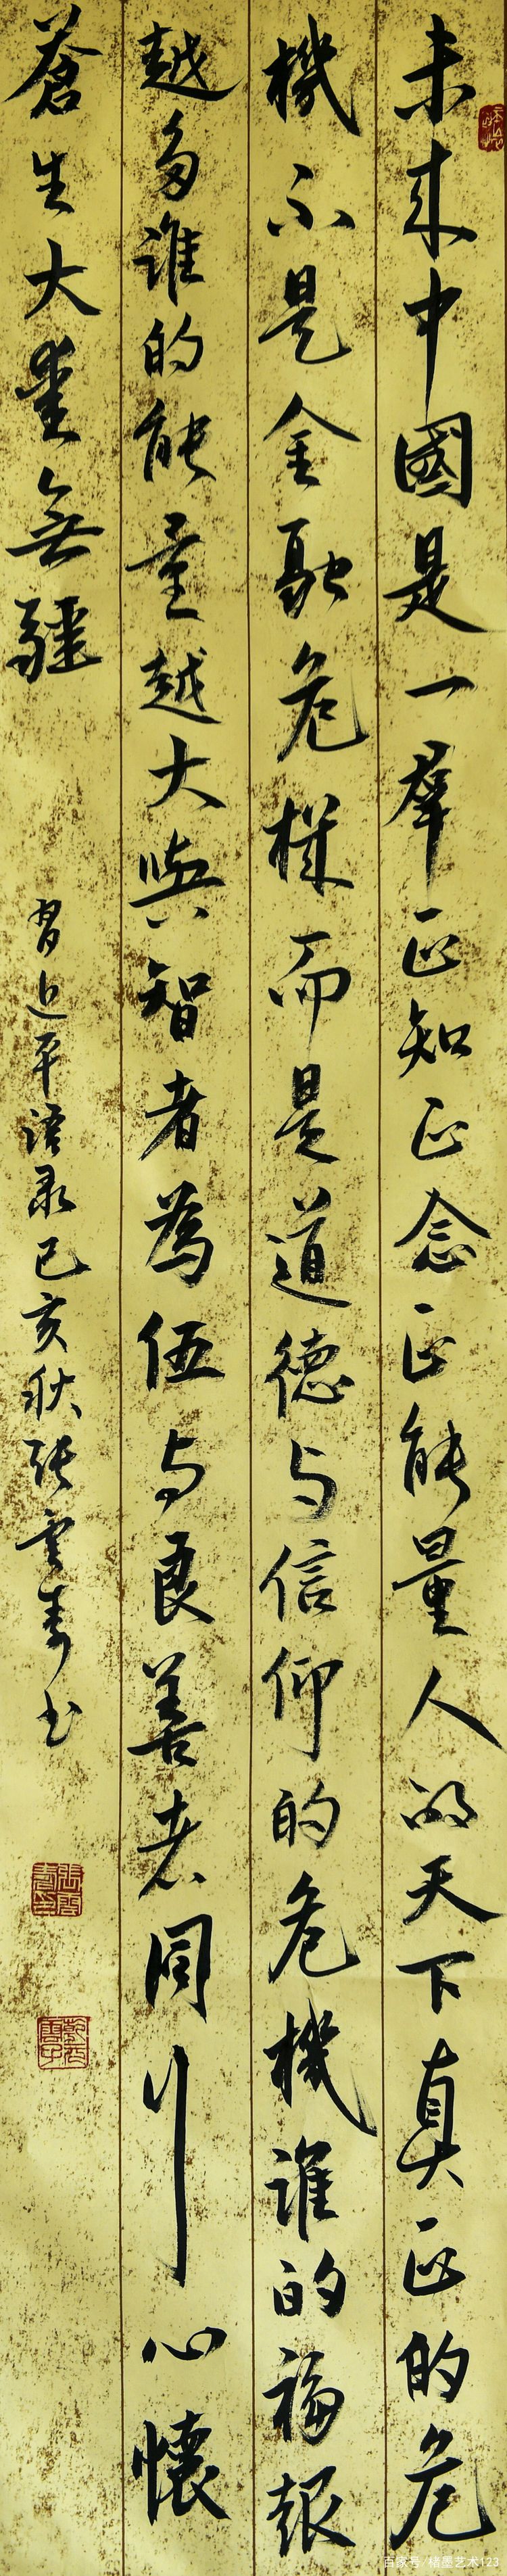 未来中國是一群正知正念正能量人的天下真正的危
機不是金融危機而是道德与信仰的危機谁的福報
越多谁的能量越大與智者為伍与良善者同行心懷
蒼生大愛無疆
習近平语录己亥秋张云寿书
百家号/楮墨艺术123